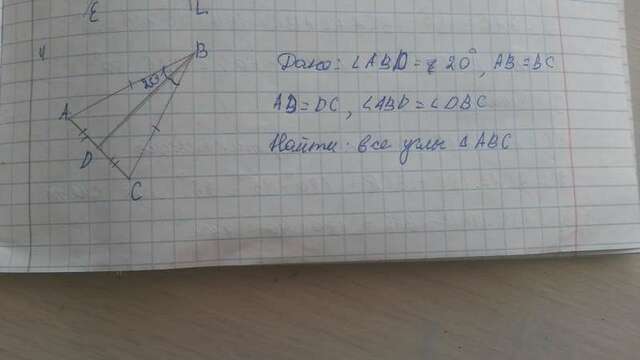 Дано: ∠ABD = 20°, AB = BC
AD = DC, ∠ABD = ∠DBC
Найти: все углы △ABC
A
D
C
B